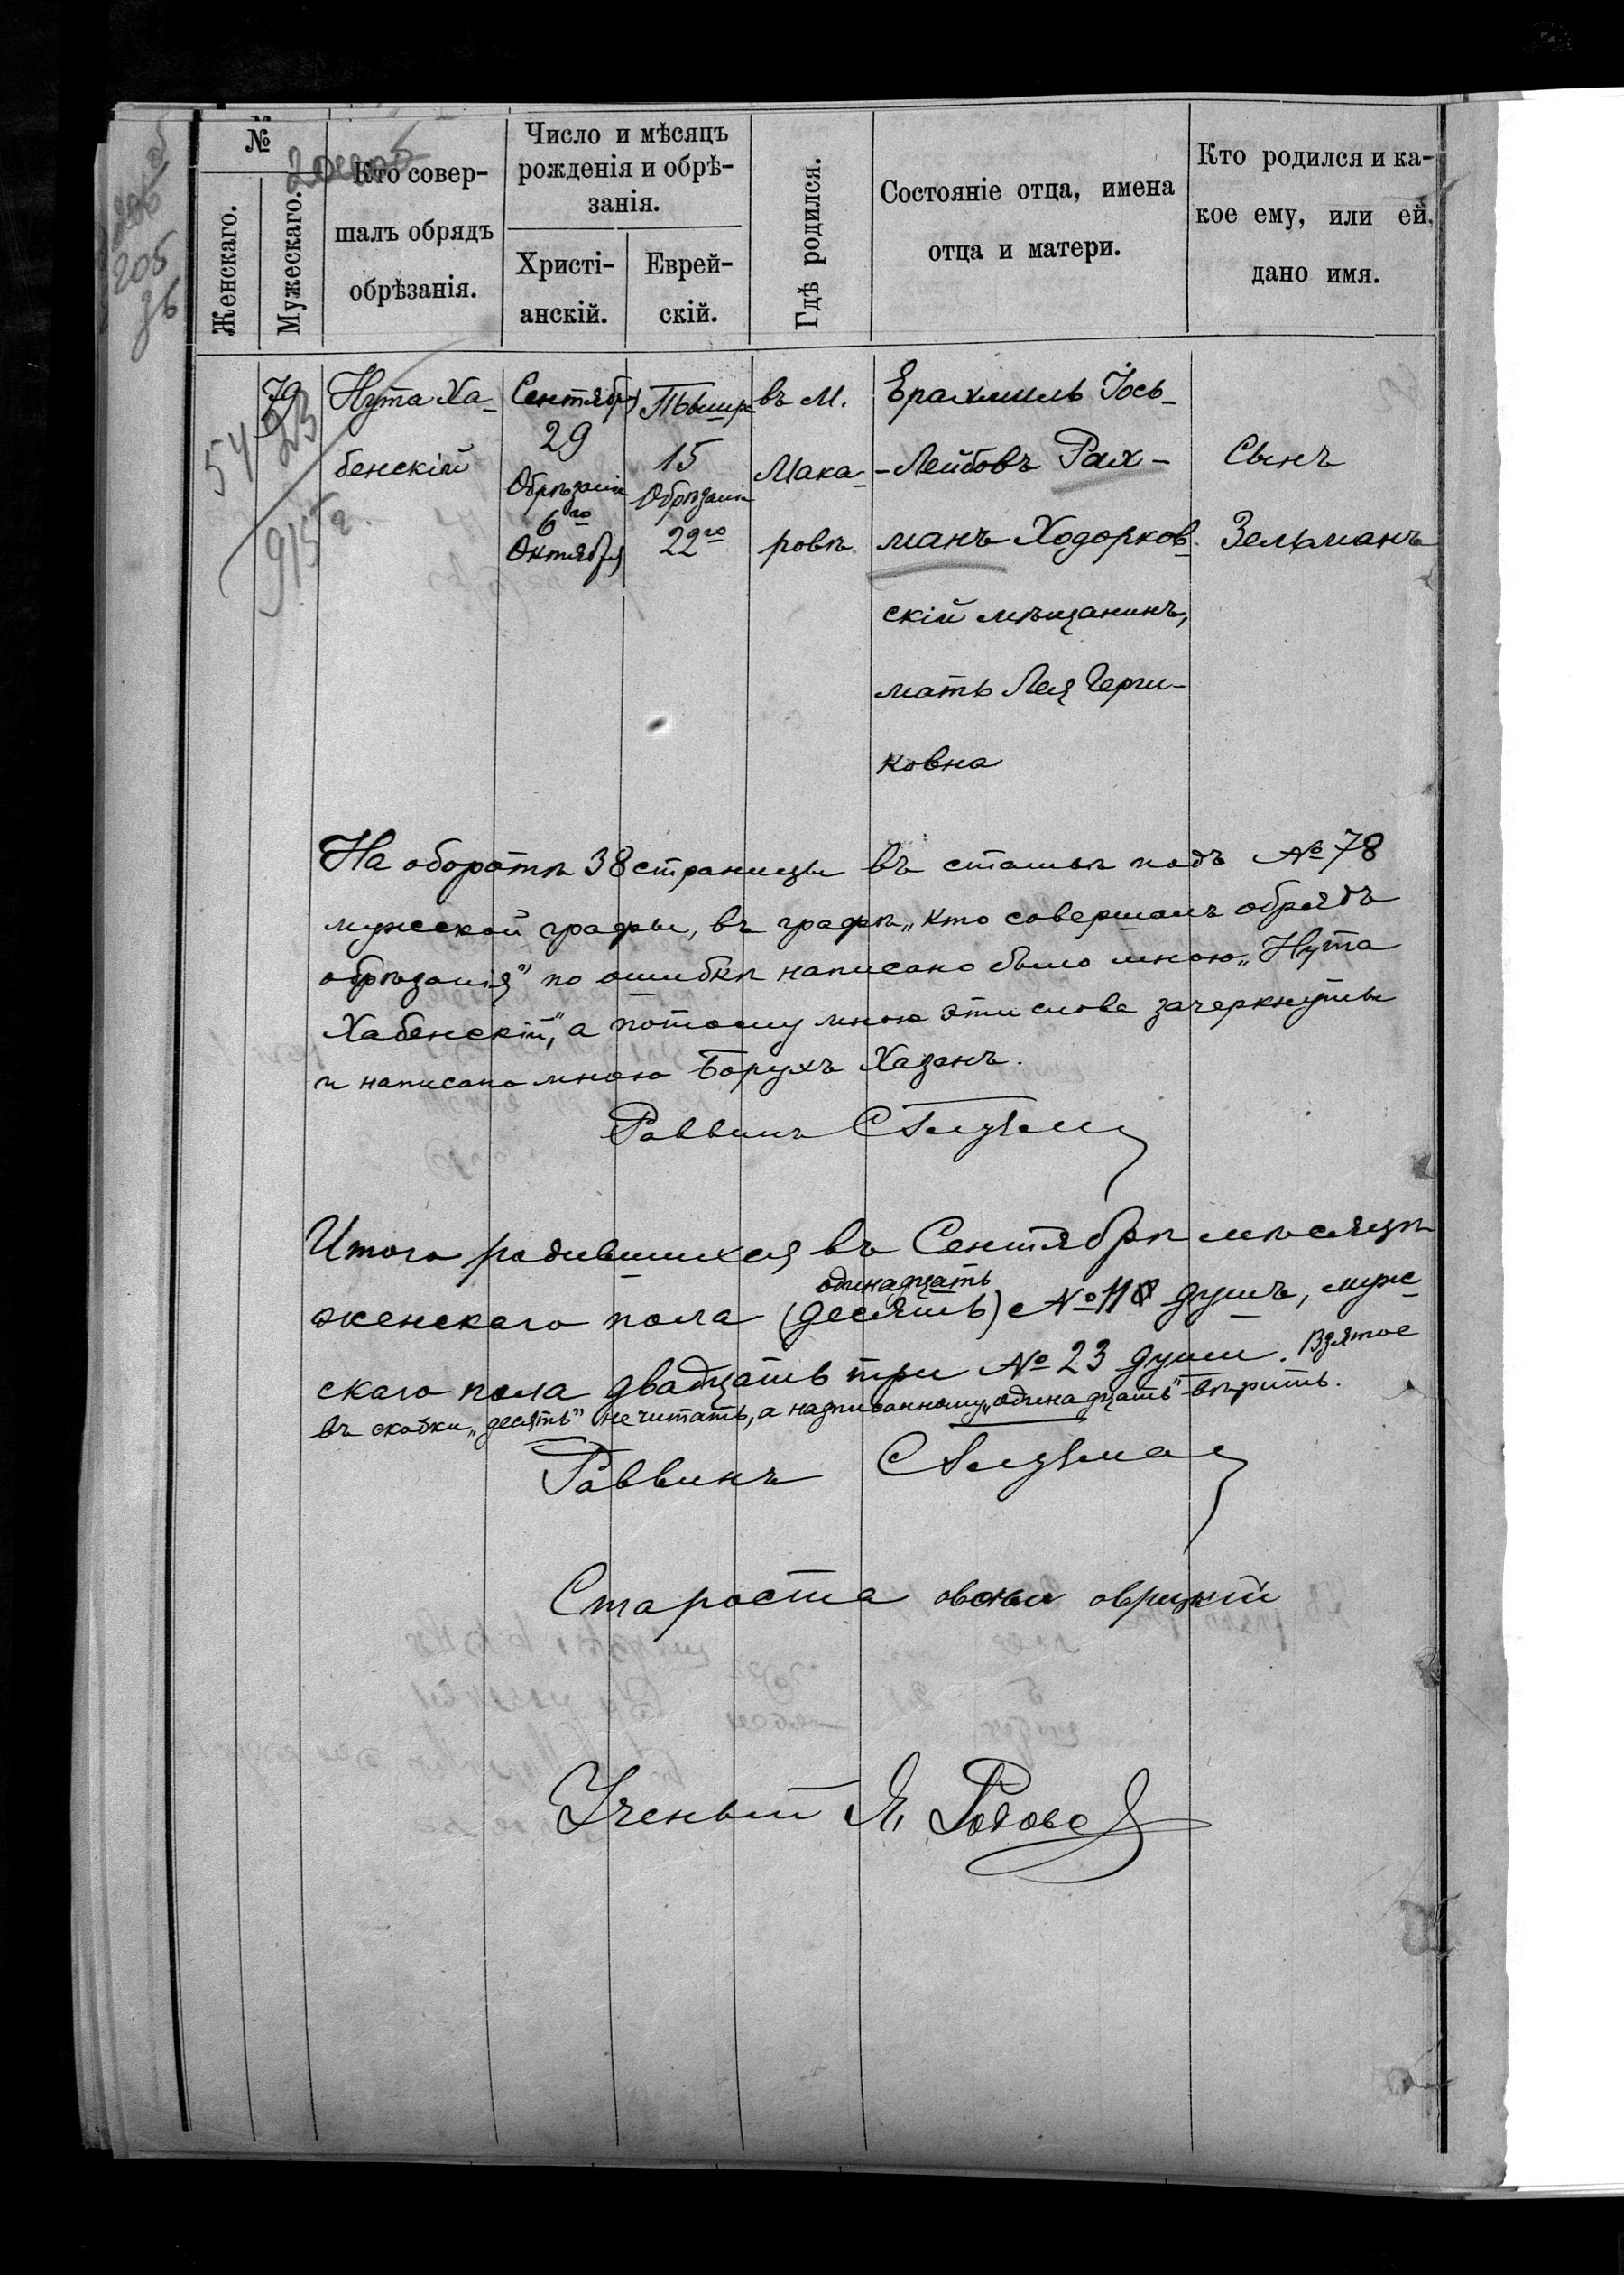 №
Женскаго.
Мужескаго.
Кто совер-
шалъ обрядъ
обрѣзанія.
Число и мѣсяцъ
рожденія и обрѣ-
занія.
Христі-
анскій.
Еврей-
скій.
Гдѣ родился.
Состояніе отца, имена
отца и матери.
Кто родился и ка-
кое ему, или ей,
дано имя.
205
36
79
23
54
915 г.
Нута Ха-
бенскій
Сентября
29
Обрѣзанія
6го
Октября
Тышри
15
Обрѣзанія
22го
въ М.
Мака-
ровѣ
Ерахмиль Іось-
-Лейбовъ Рах-
манъ Ходорков-
скій мѣщанинъ,
мать Лея Герш-
ковна
Сынъ
Зельманъ
На оборотѣ 38 страницы въ статьѣ подъ № 78
мужской графы, въ графѣ „кто совершалъ обрядъ
обрѣзанія" по ошибкѣ написано было мною „Нута
Хабенскій", а потому мною эти слова зачеркнуты
и написано мною Борухъ Хазанъ.
Раввинъ
Итого родившихся въ Сентябрѣ мѣсяцѣ
одинадцать
женскаго пола (десять) № 11 душъ, муж-
скаго пола двадцать три № 23 души. Взятое
въ скобки „десять" не читать, а надписанному „одинадцать" вѣрить.
Раввинъ
Староста
Ученый Я.